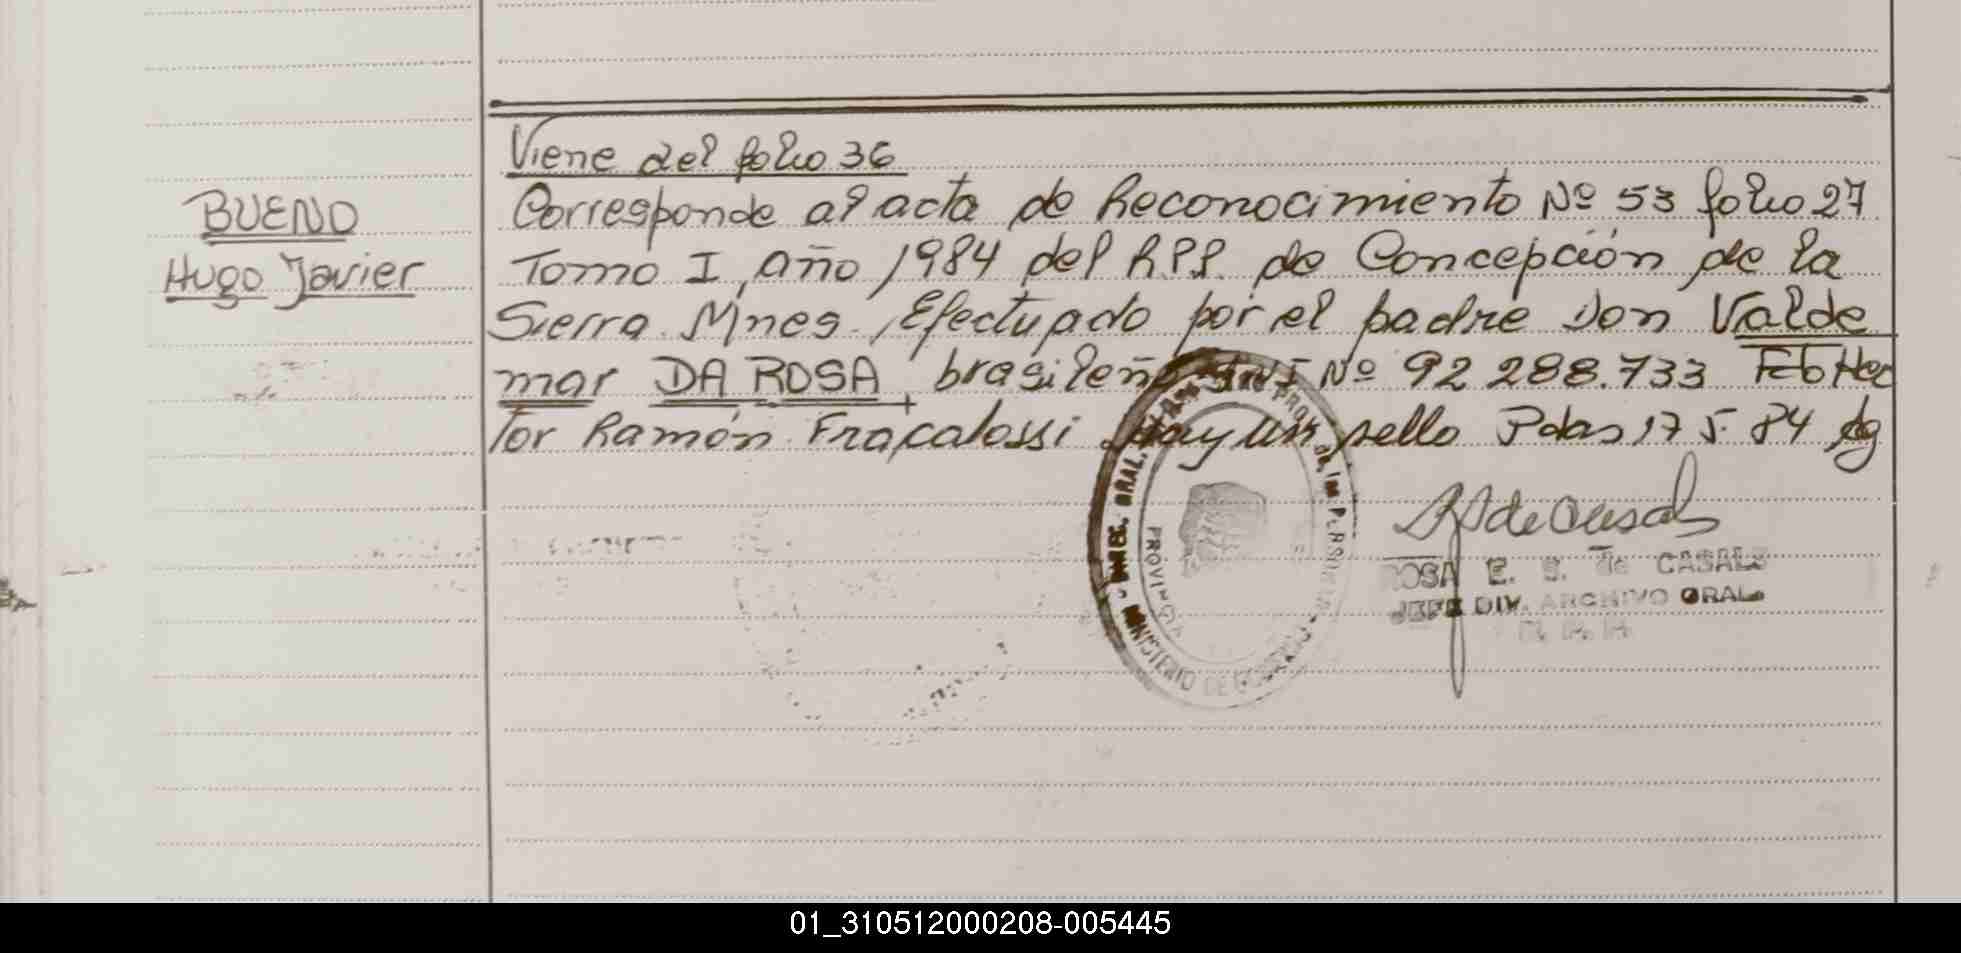 Viene del folio 36
BUENO
Hugo Javier
Corresponde al acta de Reconocimiento Nº 53 folio 27
Tomo I, año 1984 del R.P.P. de Concepción de la
Sierra. Mnes. Efectuado por el padre Don Valde
mar DA ROSA, brasileño DNI Nº 92 288.733 Fdo Hec
tor Ramón Fracalossi Hay un sello Pdas 17 5 84
ROSA E. S. de CASALS
JEFE DIV. ARCHIVO GRAL.
R. P. P.
DIREC. GRAL. PROV. de las PERSONAS
MINISTERIO DE GOBIERNO
01_310512000208-005445